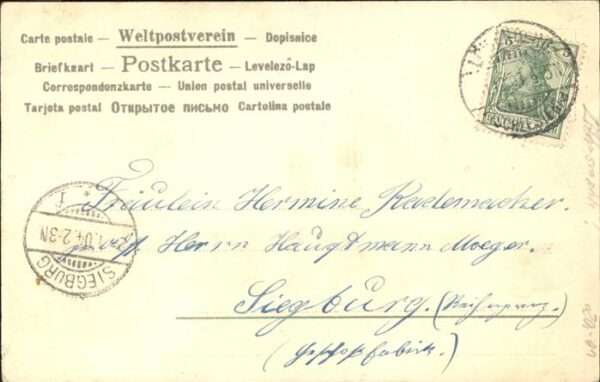 Carte postale — Weltpostverein — Dopisnice
Briefkaart — Postkarte — Levelező-Lap
Correspondenzkarte — Union postal universelle
Tarjota postal Открытое письмо Cartolina postale
Fräulein Hermine Rademacher.
Herrn Hauptmann Moeger.
Siegburg.
(Geschoßfabrik.)
SIEGBURG
2-3N